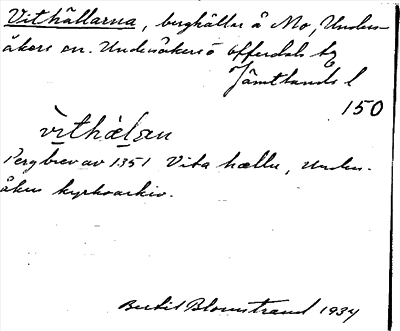 Vithällarna, berghällar å Mo, Unders-
åkers sn. Undersåkers o Offerdals tg
Jämtlands l
150
vìthæ̀lạṇ
Pergbrev av 1351 Vita hællu, Unders-
åkers kyrkoarkiv.
Bertil Blomstrand 1934